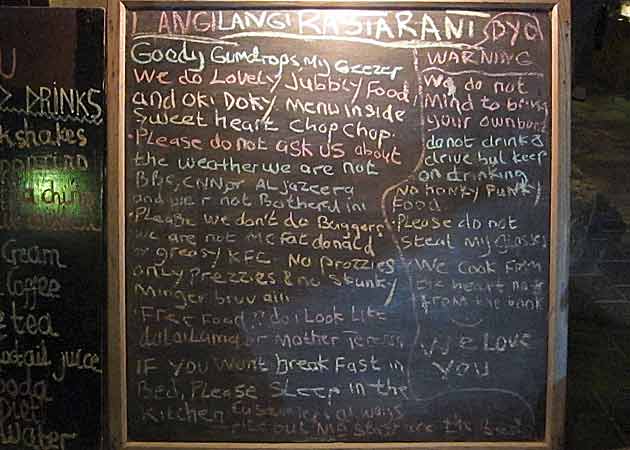 LANGI LANGI RASTARANI BYO
Goody Gumdrops My Geezer
We do Lovely Jubbly Food
and OKi DOKy Menu inside
Sweet heart Chop Chop.
Please do not ask US about
the weather we are not
BBC, CNN or AL jazeera
and we r not Bothered ini
Please we don't do Buggers
we are not Mc Fatdonald
or greasy KFC. No Prozzies
only Prezzies & no skunky
Minger bruv aiii
"Free Food"? do i Look Like
dalai Lama or Mother Teresa
IF you Want break Fast in
Bed, Please Sleep in the
Kitchen
are the
WARNING
We do not
mind to bring
your own
do not drink &
drive but keep
on drinking
No hanky Punky
Food.
Please do not
steal my glasses
We Cook From
the heart not
from the book
We Love
You
U
DRINKS
kshakes
Cream
Coffee
e tea
juice
oda
Diet
Water